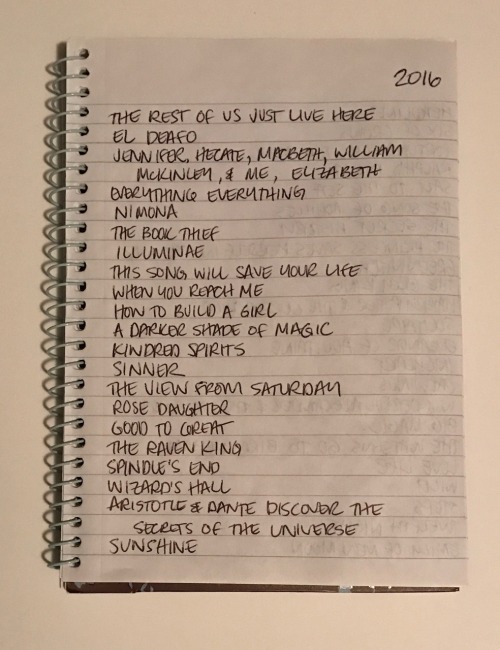 2016
THE REST OF US JUST LIVE HERE
EL DEAFO
JENNIFER, HECATE, MACBETH, WILLIAM
MCKINLEY, & ME, ELIZABETH
EVERYTHING EVERYTHING
NIMONA
THE BOOK THIEF
ILLUMINAE
THIS SONG WILL SAVE YOUR LIFE
WHEN YOU REACH ME
HOW TO BUILD A GIRL
A DARKER SHADE OF MAGIC
KINDRED SPIRITS
SINNER
THE VIEW FROM SATURDAY
ROSE DAUGHTER
GOOD TO GREAT
THE RAVEN KING
SPINDLE'S END
WIZARD'S HALL
ARISTOTLE & DANTE DISCOVER THE
SECRETS OF THE UNIVERSE
SUNSHINE